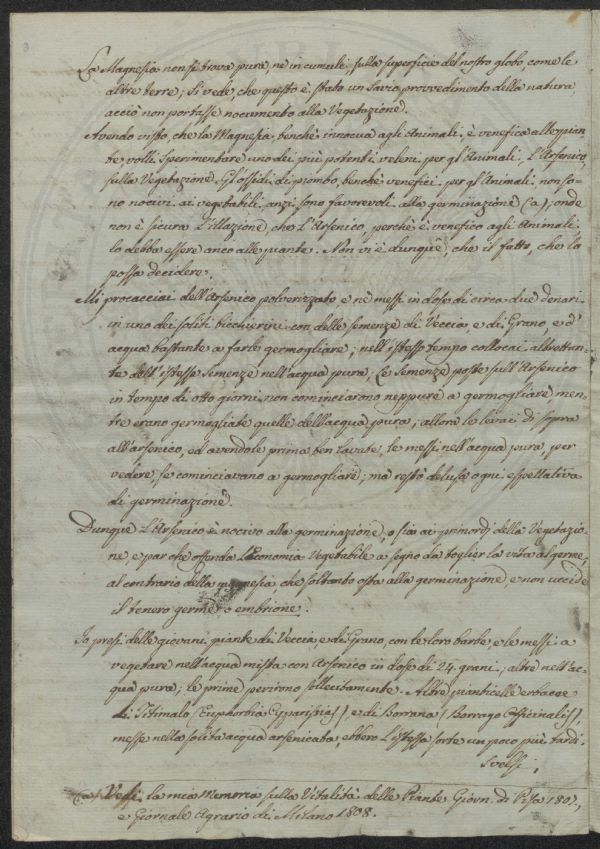 La Magnesia non si trova pura, nè in cumuli, sulla superficie del nostro globo, come le
altre terre; Si vede, che questo è stato un Savio provvedimento della natura,
acciò non portasse nocumento alla Vegetazione.
Avendo visto, che la Magnesia benchè innocua agli Animali è venefica alle pian-
te volli sperimentare uno dei più potenti veleni per gl'Animali, l'Arsenico,
sulla Vegetazione. Gl'ossidi di piombo, benchè venefici per gl'Animali non so-
no nocivi ai vegetabili anzi sono favorevoli alla germinazione (a), onde
non è sicura l'illazione, che l'Arsenico, perchè è venefico agli Animali
lo debba essere anco alle piante. Non vi è dunque, che il fatto, che lo
possa decidere.
Mi procacciai dell'Arsenico polverizzato e nè messi in dose di circa due denari
in uno dei soliti bicchierini con delle semenze di Veccia, e di Grano, e d'
acqua bastante a farle germogliare; nell'istesso tempo collocai altrettan-
te dell'istesse semenze nell'acqua pura; le semenze poste sull'Arsenico
in tempo di otto giorni non cominciarono neppure a germogliare men-
tre erano germogliate quelle dell'acqua pura; allora le levai di sopra
all'arsenico, ed avendole prima ben lavate, le messi nell'acqua pura, per
vedere, se cominciavano a germogliare; ma restò delusa ogni espettativa
di germinazione.
Dunque l'Arsenico è nocivo alla germinazione, o sia ai primordj della Vegetazio-
ne, e par che offenda l'Economia Vegetabile a segno da toglier la vita al germe,
al contrario della magnesia, che soltanto osta alla germinazione, e non uccide
il tenero germe, o embrione.
Io presi delle giovani piante di Veccia, e di Grano, con le loro barbe, e le messi a
vegetare nell'acqua mista con Arsenico in dose di 24 grani; altre nell'ac-
qua pura; le prime perirono sollecitamente. Altre pianticelle erbacee
di Titimalo (Euphorbia Cyparissias), e di Borrana (Borrago Officinalis),
messe nella solita acqua arsenicata, ebbero l'istessa sorte un poco più tardi.
Svelsi;
(a) Vessi, la mia Memoria sulla Vitalità delle Piante Giorn. di Pisa 1807,
e Giornale Agrario di Milano 1808.